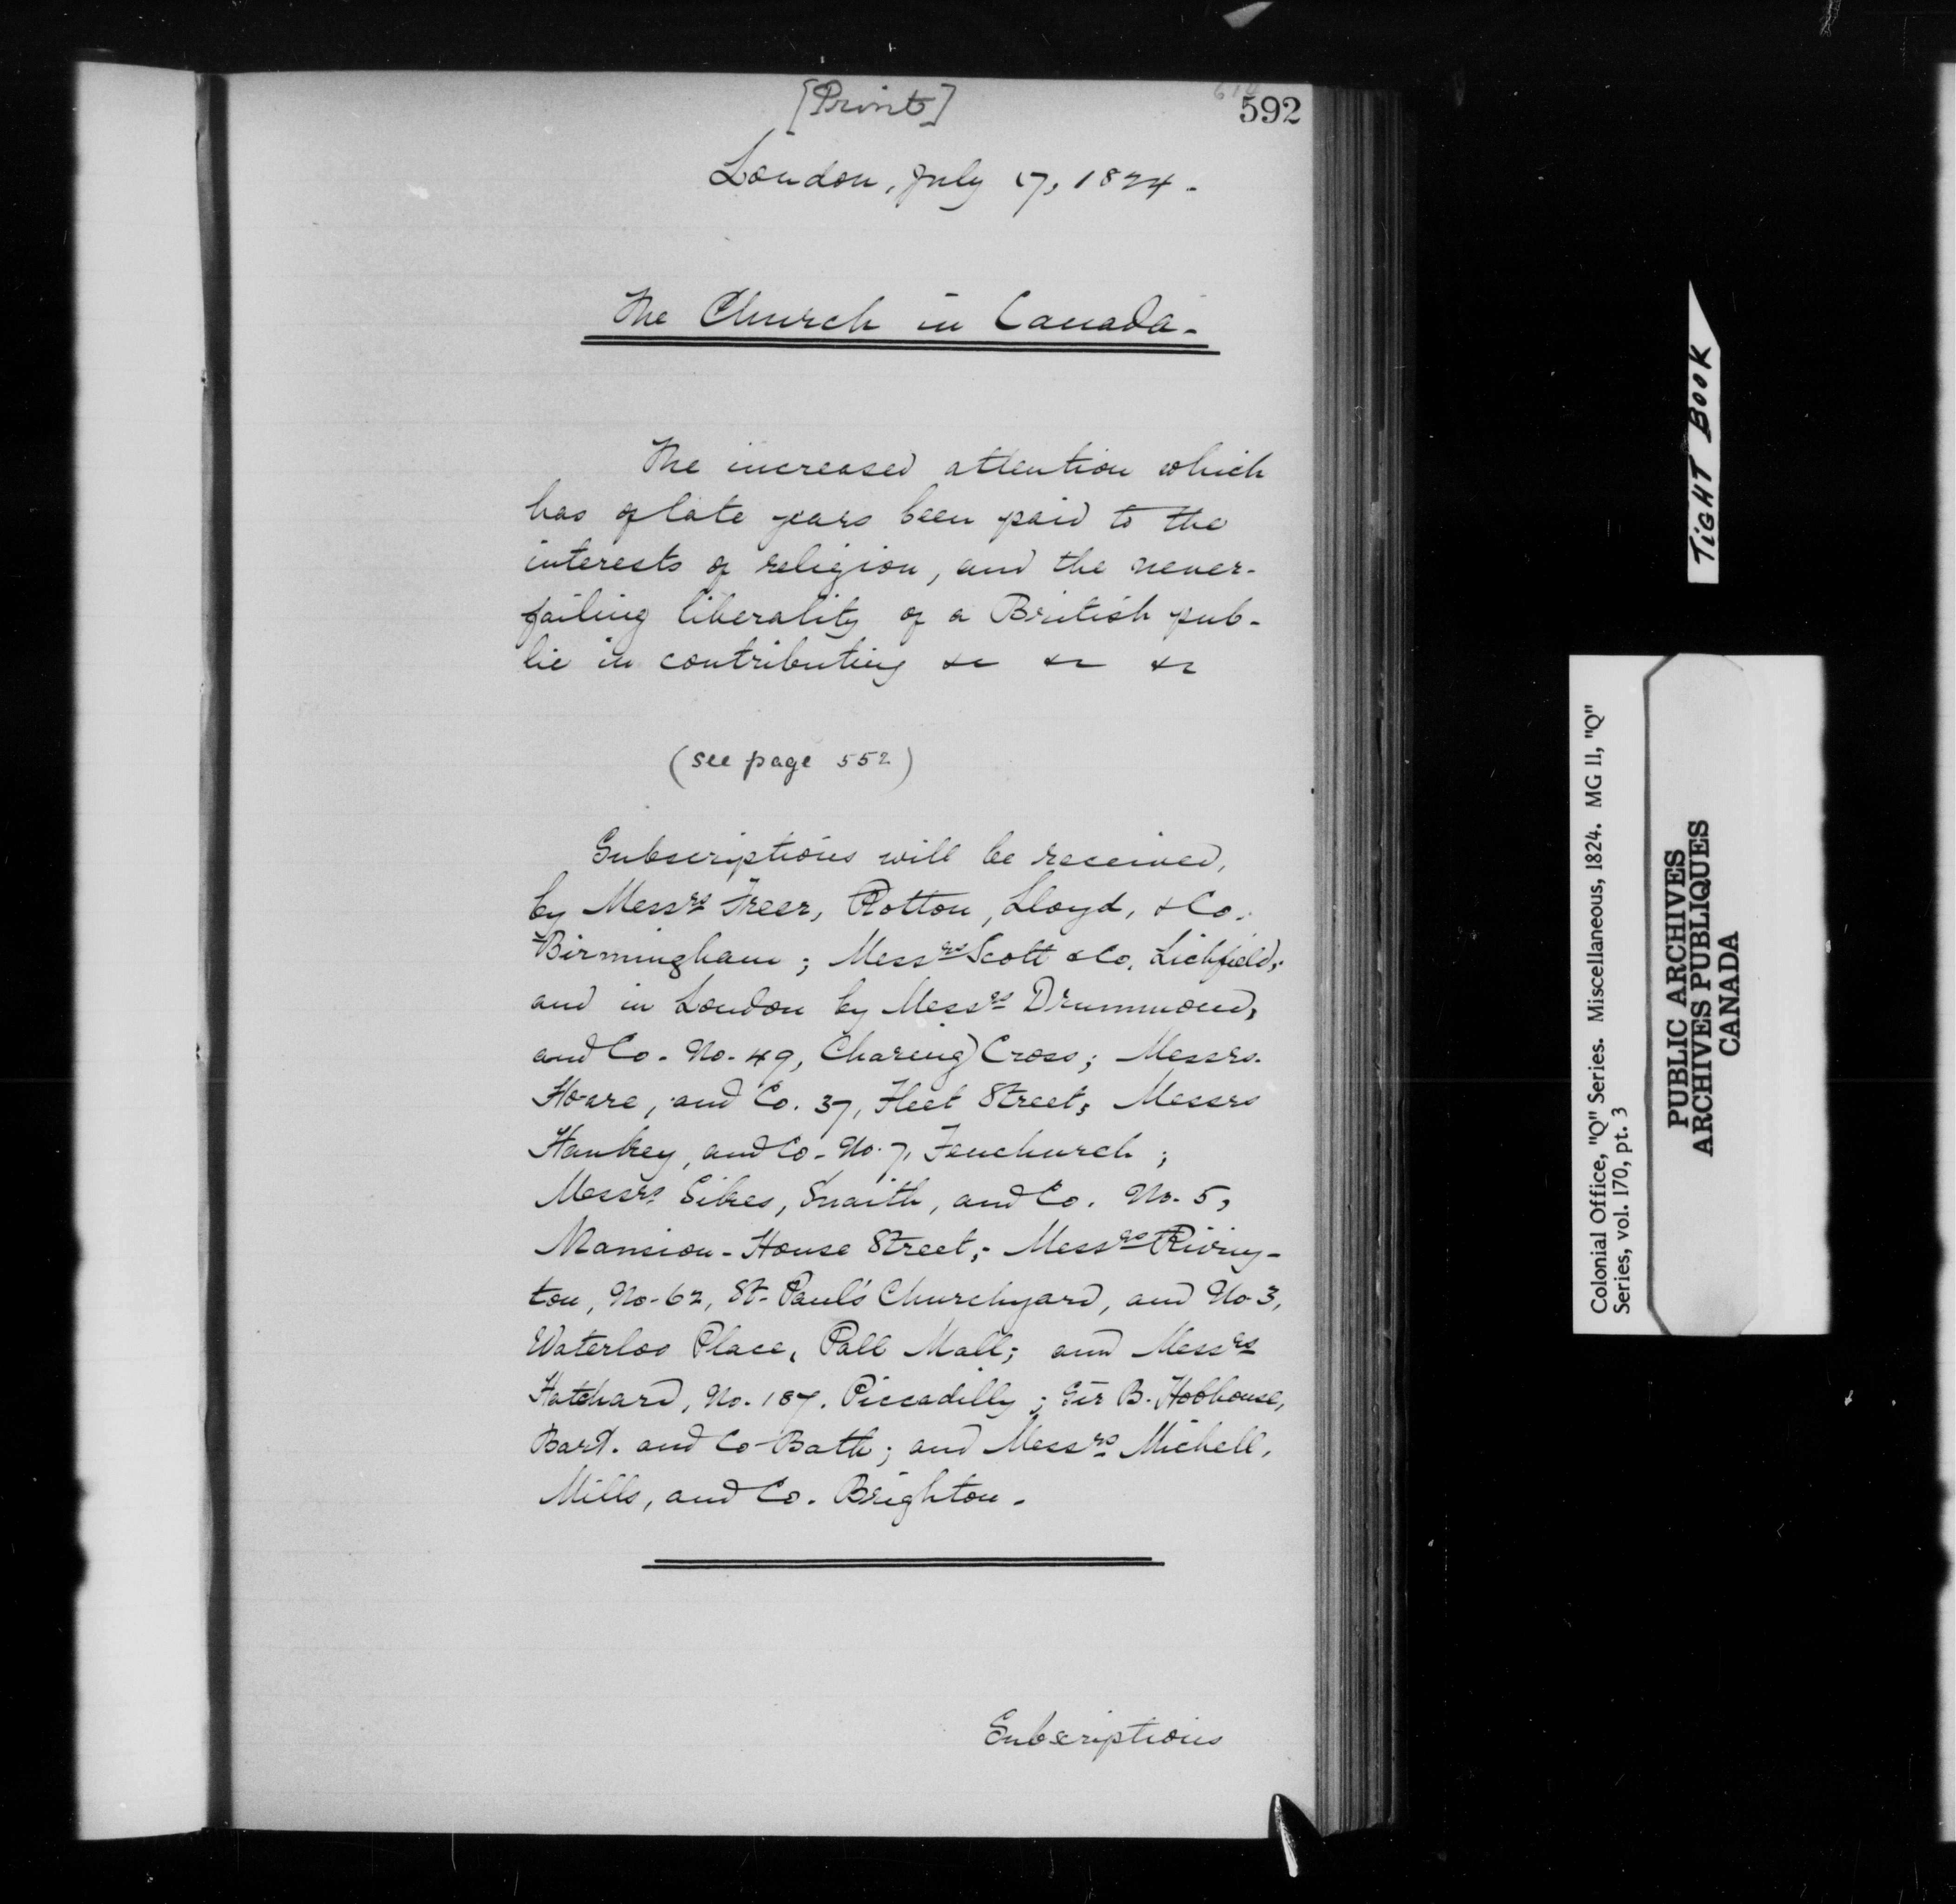 [Print]
592
London, July 17, 1824.
The Church in Canada.
The increased attention which
has of late years been paid to the
interests of religion, and the never-
failing liberality of a British pub-
lic in contributing &c &c &c
(see page 552)
Subscriptions will be received,
by Messrs Freer, Rotton, Lloyd, & Co.
Birmingham; Messrs Scott & Co. Lichfield;
and in London by Messrs Drummond,
and Co. No. 49, Charing Cross; Messrs.
Hoare, and Co. 37, Fleet Street; Messrs
Hankey, and Co. No. 7, Fenchurch;
Messrs Sikes, Snaith, and Co. No. 5,
Mansion-House Street; Messrs Riving-
ton, No. 62, St. Paul's Churchyard, and No 3,
Waterloo Place, Pall Mall; and Messrs
Hatchard, No. 187. Piccadilly; Sir B. Hobhouse,
Bart. and Co Bath; and Messrs Michell,
Mills, and Co. Brighton.
Subscriptions
TIGHT BOOK
Colonial Office, "Q" Series. Miscellaneous, 1824. MG 11, "Q"
Series, vol. 170, pt. 3
PUBLIC ARCHIVES
ARCHIVES PUBLIQUES
CANADA